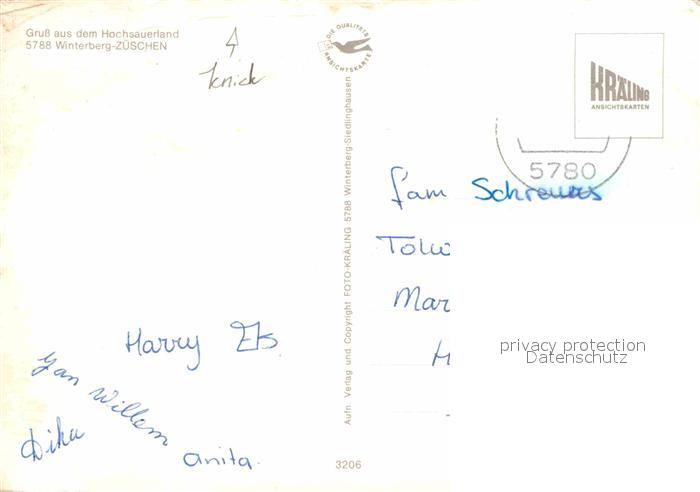 Gruß aus dem Hochsauerland
5788 Winterberg-ZÜSCHEN
Knick
DIE QUALITÄTS
ANSICHTSKARTE
KRÄLING
ANSICHTSKARTEN
5780
fam Schreurs
Mar
H
privacy protection
Datenschutz
Harry
Jan Willem
anita
Aufn. Verlag und Copyright FOTO-KRÄLING 5788 Winterberg-Siedlinghausen
3206